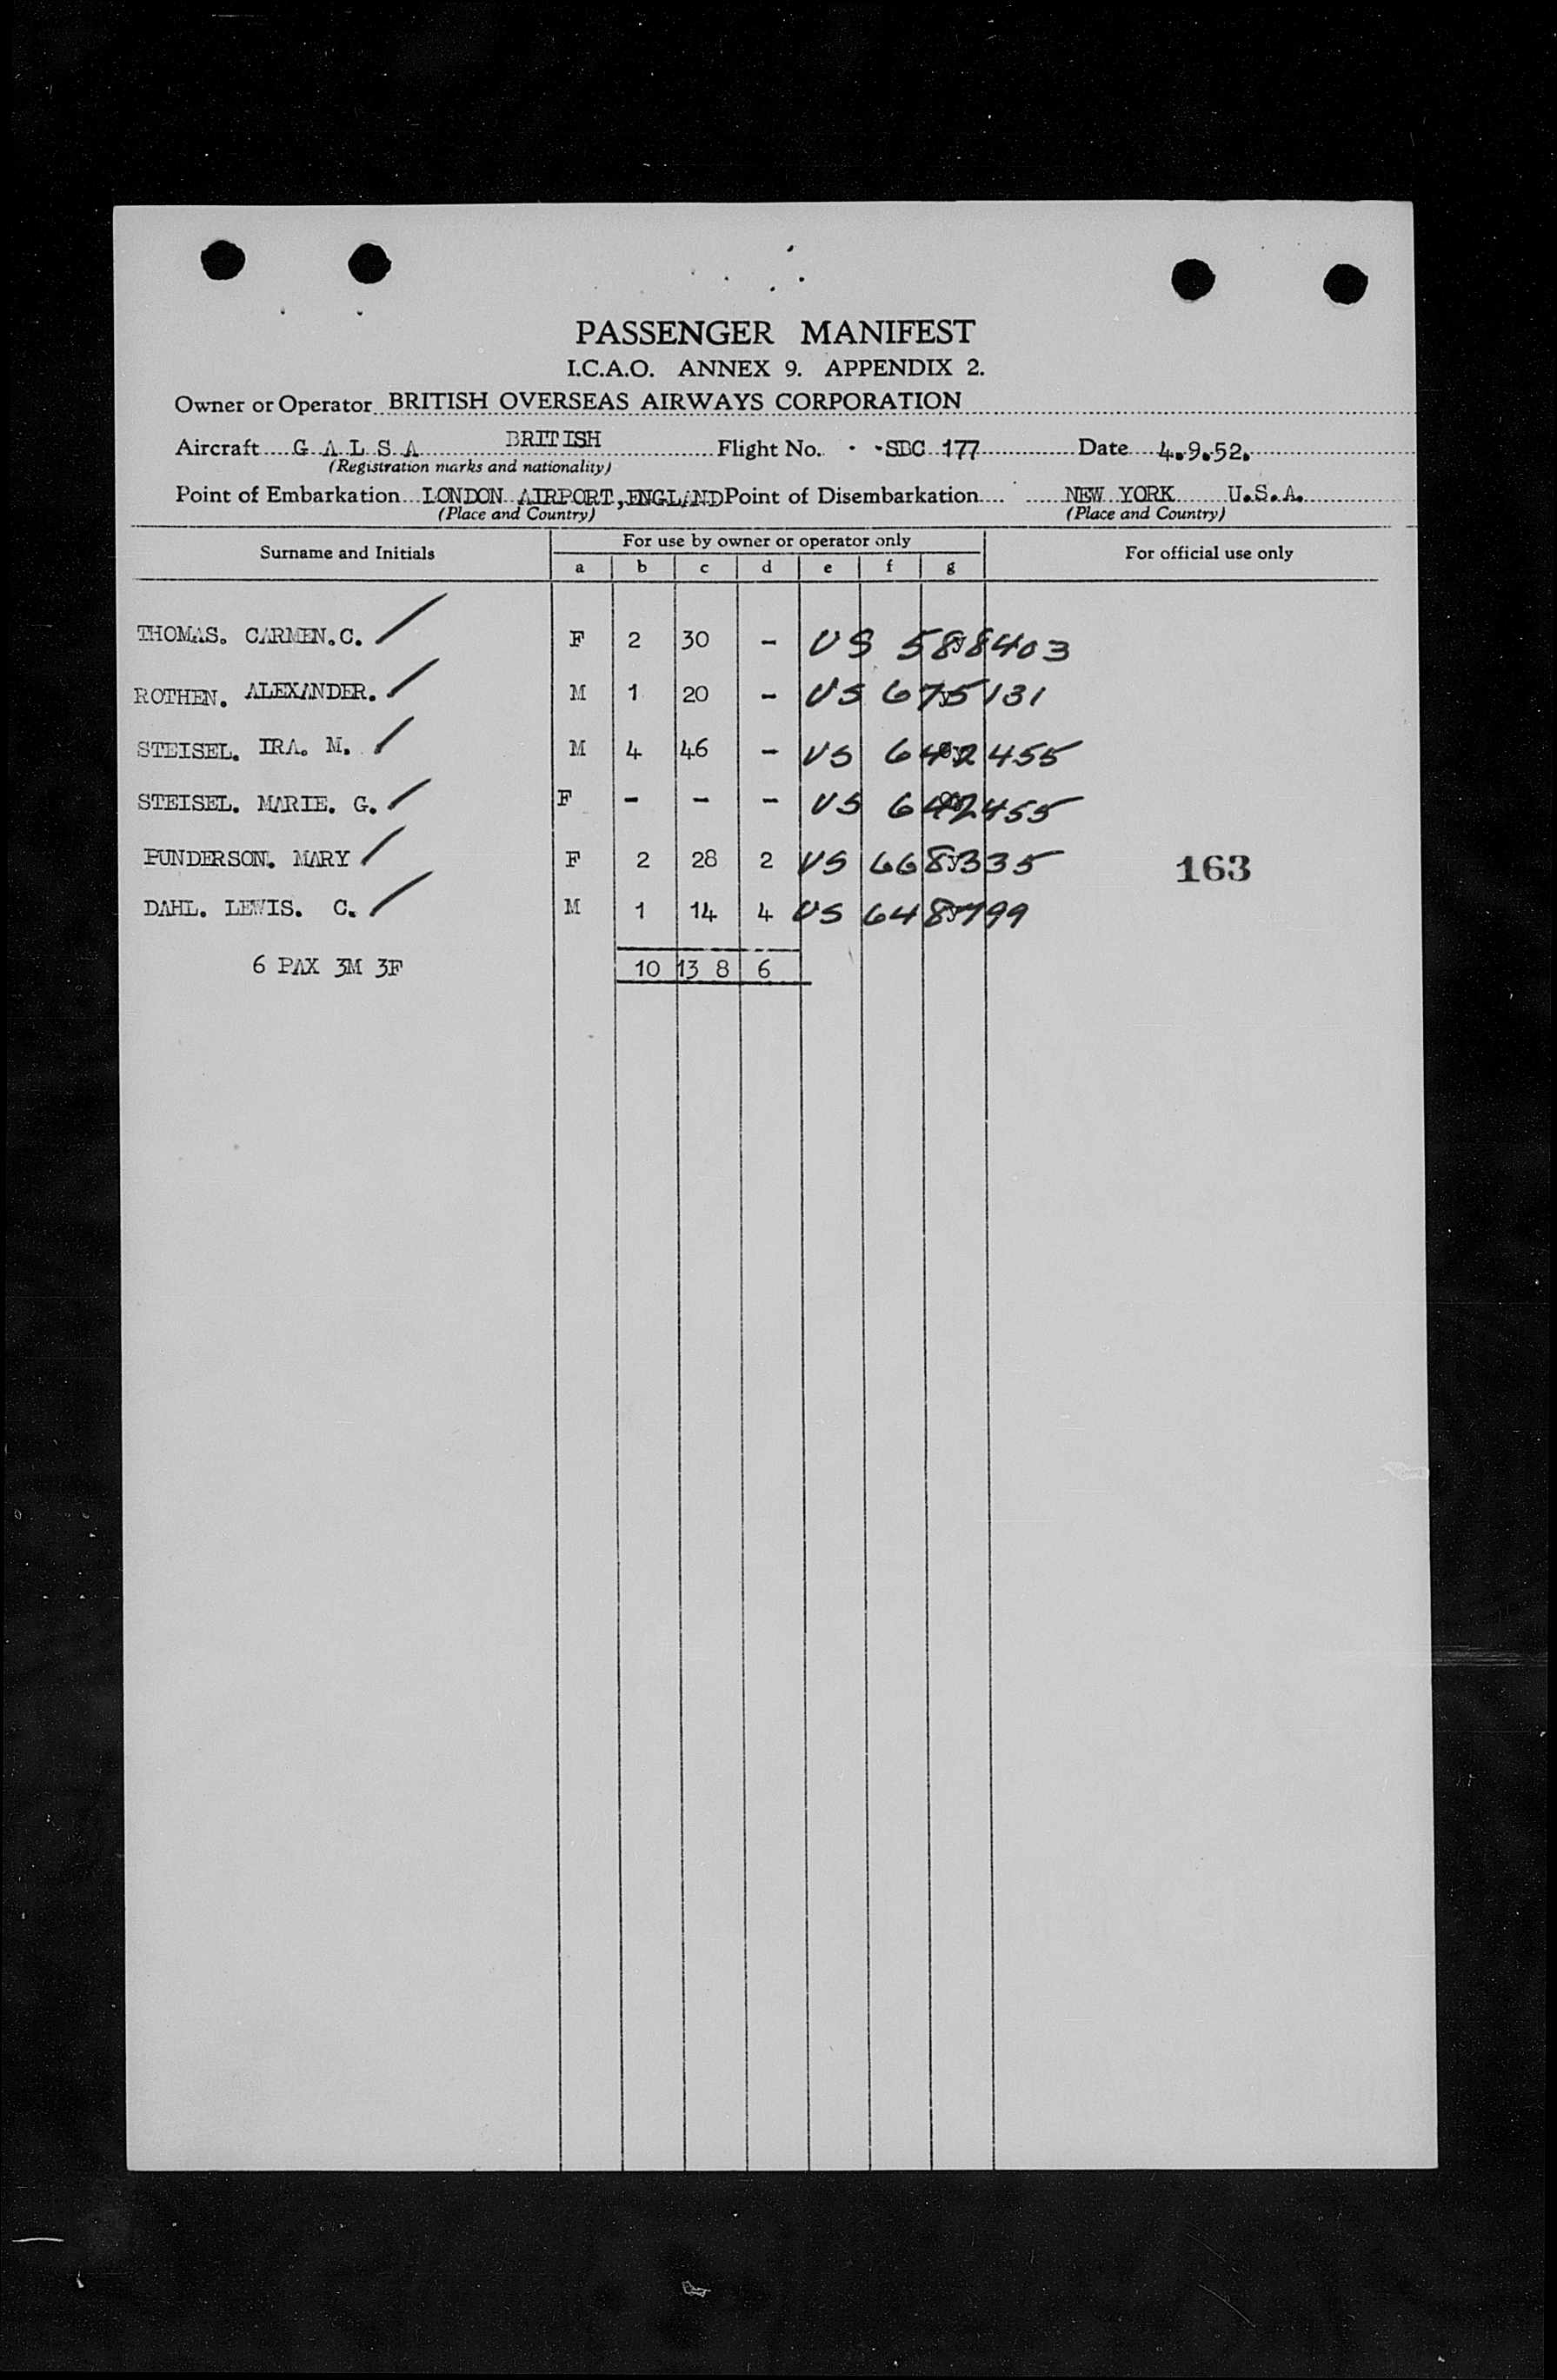 PASSENGER MANIFEST
I.C.A.O. ANNEX 9. APPENDIX 2.
Owner or Operator BRITISH OVERSEAS AIRWAYS CORPORATION
Aircraft G A L S A BRITISH Flight No. SBC 177 Date 4.9.52.
(Registration marks and nationality)
Point of Embarkation LONDON AIRPORT, ENGLAND Point of Disembarkation NEW YORK U.S.A.
(Place and Country) (Place and Country)
Surname and Initials For use by owner or operator only For official use only
a b c d e f g
THOMAS. CARMEN.C. F 2 30 - US 588403
ROTHEN. ALEXANDER. M 1 20 - US 675131
STEISEL. IRA. M. M 4 46 - US 642455
STEISEL. MARIE. G. F - - - US 642455
PUNDERSON. MARY F 2 28 2 US 668335 163
DAHL. LEWIS. C. M 1 14 4 US 648799
6 PAX 3M 3F 10 13 8 6